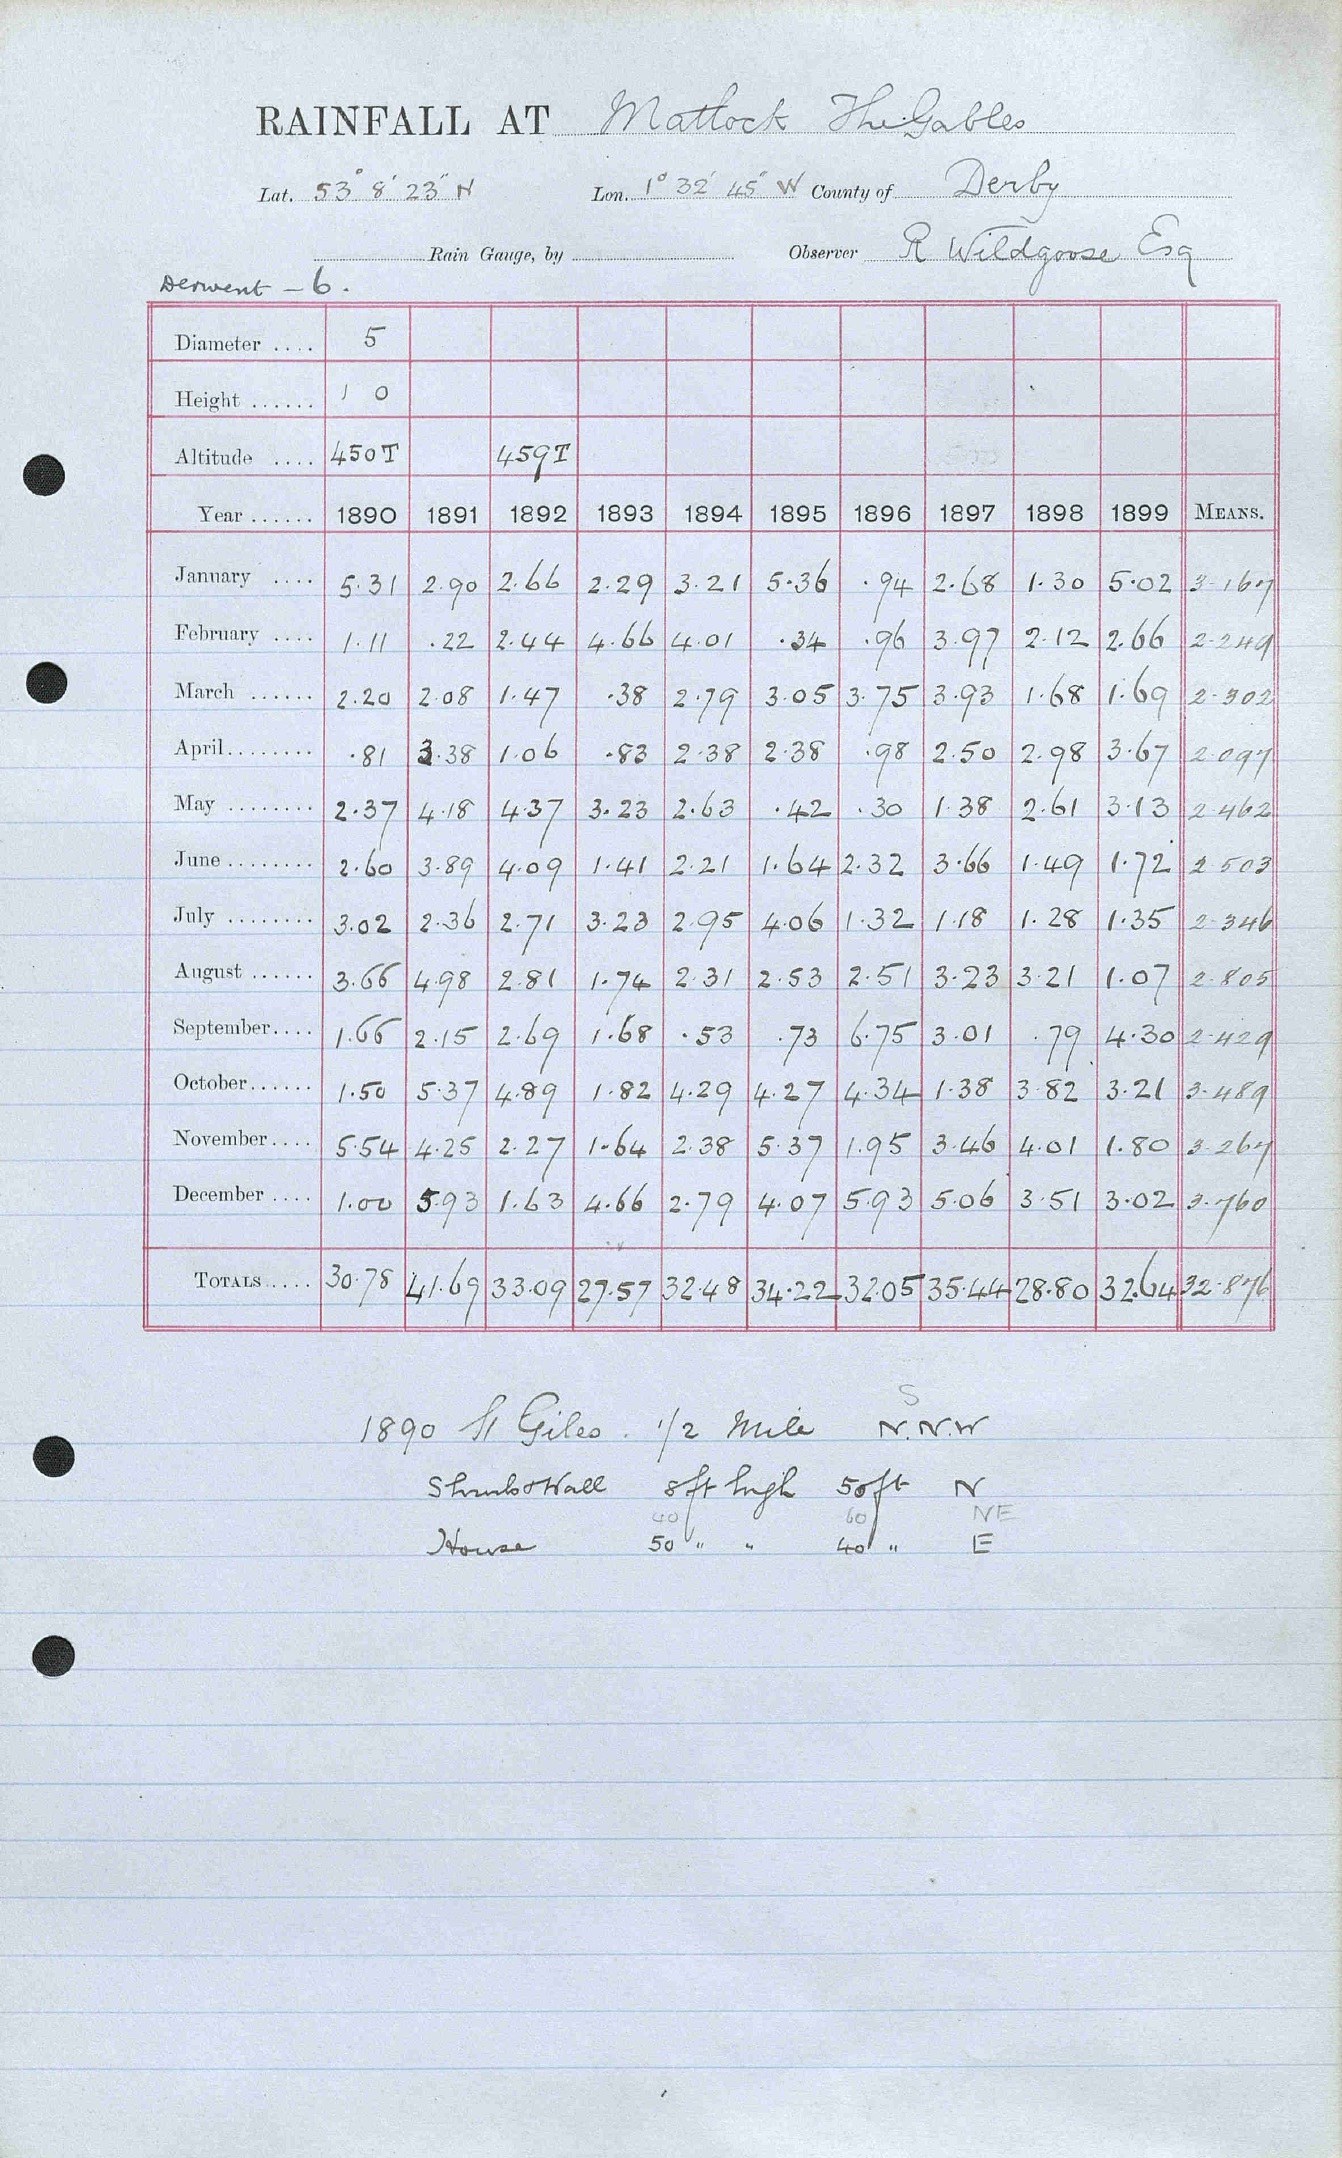 RAINFALL AT Matlock The Gables
Lat. 53° 8' 23" N Lon. 1° 32' 45" W County of Derby
Rain Gauge, by Observer R Wildgoose Esq
Derwent - 6.
Diameter .... 5
Height ...... 1 0
Altitude .... 450T 459T
Year ...... 1890 1891 1892 1893 1894 1895 1896 1897 1898 1899 MEANS.
January .... 5.31 2.90 2.66 2.29 3.21 5.36 .94 2.68 1.30 5.02 3.167
February .... 1.11 .22 2.44 4.66 4.01 .34 .96 3.97 2.12 2.66 2.249
March ...... 2.20 2.08 1.47 .38 2.79 3.05 3.75 3.93 1.68 1.69 2.302
April........ .81 3.38 1.06 .83 2.38 2.38 .98 2.50 2.98 3.67 2.097
May ........ 2.37 4.18 4.37 3.23 2.63 .42 .30 1.38 2.61 3.13 2.462
June ........ 2.60 3.89 4.09 1.41 2.21 1.64 2.32 3.66 1.49 1.72 2.503
July ........ 3.02 2.36 2.71 3.23 2.95 4.06 1.32 1.18 1.28 1.35 2.346
August ...... 3.66 4.98 2.81 1.74 2.31 2.53 2.51 3.23 3.21 1.07 2.805
September.... 1.66 2.15 2.69 1.68 .53 .73 6.75 3.01 .79 4.30 2.429
October...... 1.50 5.37 4.89 1.82 4.29 4.27 4.34 1.38 3.82 3.21 3.489
November.... 5.54 4.25 2.27 1.64 2.38 5.37 1.95 3.46 4.01 1.80 3.267
December .... 1.00 5.93 1.63 4.66 2.79 4.07 5.93 5.06 3.51 3.02 3.760
TOTALS.... 30.78 41.69 33.09 27.57 32.48 34.22 32.05 35.44 28.80 32.64 32.876
S
1890 St Giles. 1/2 Mile N.N.W
Shrubs & Wall 8ft high 50ft N
40 60 NE
House 50 " " 40 " E